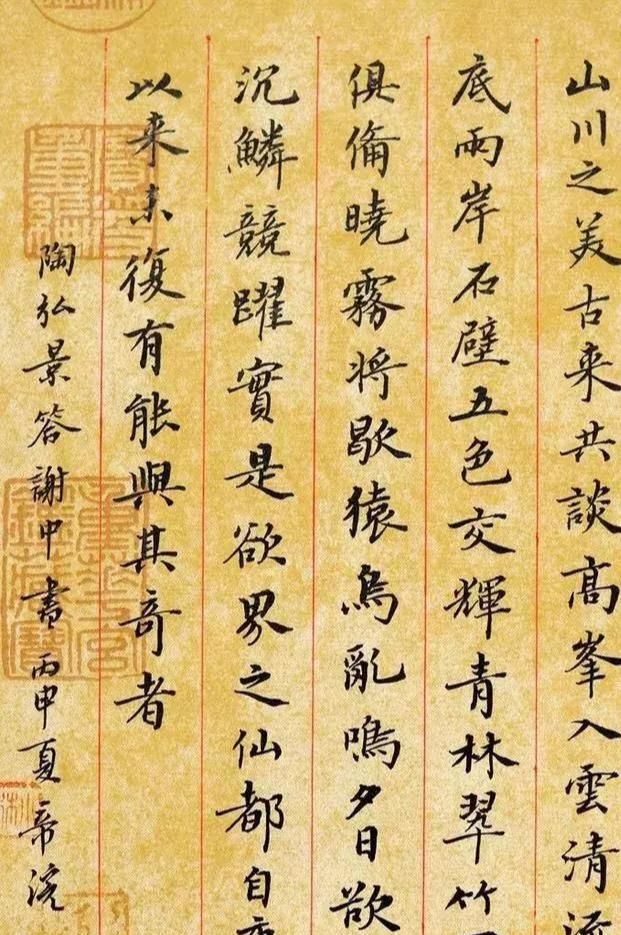 山川之美古来共談高峯入雲清流
底兩岸石壁五色交輝青林翠竹
俱備曉霧將歇猿鳥亂鳴夕日欲
沉鱗競躍實是欲界之仙都自
以来未復有能與其奇者
陶弘景答謝中書丙申夏